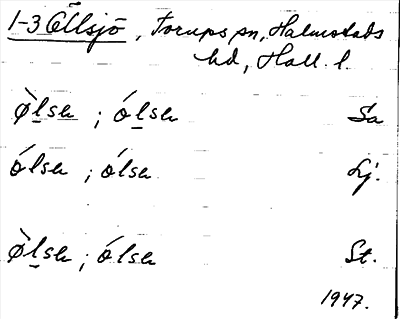 1-3 Öllsjö, Torups sn, Halmstads
hd, Hall. l.
ø̀lsa ; ólsa Sa
ólsa ; ólsa Lj.
ø̀lsa ; ólsa St.
1947.